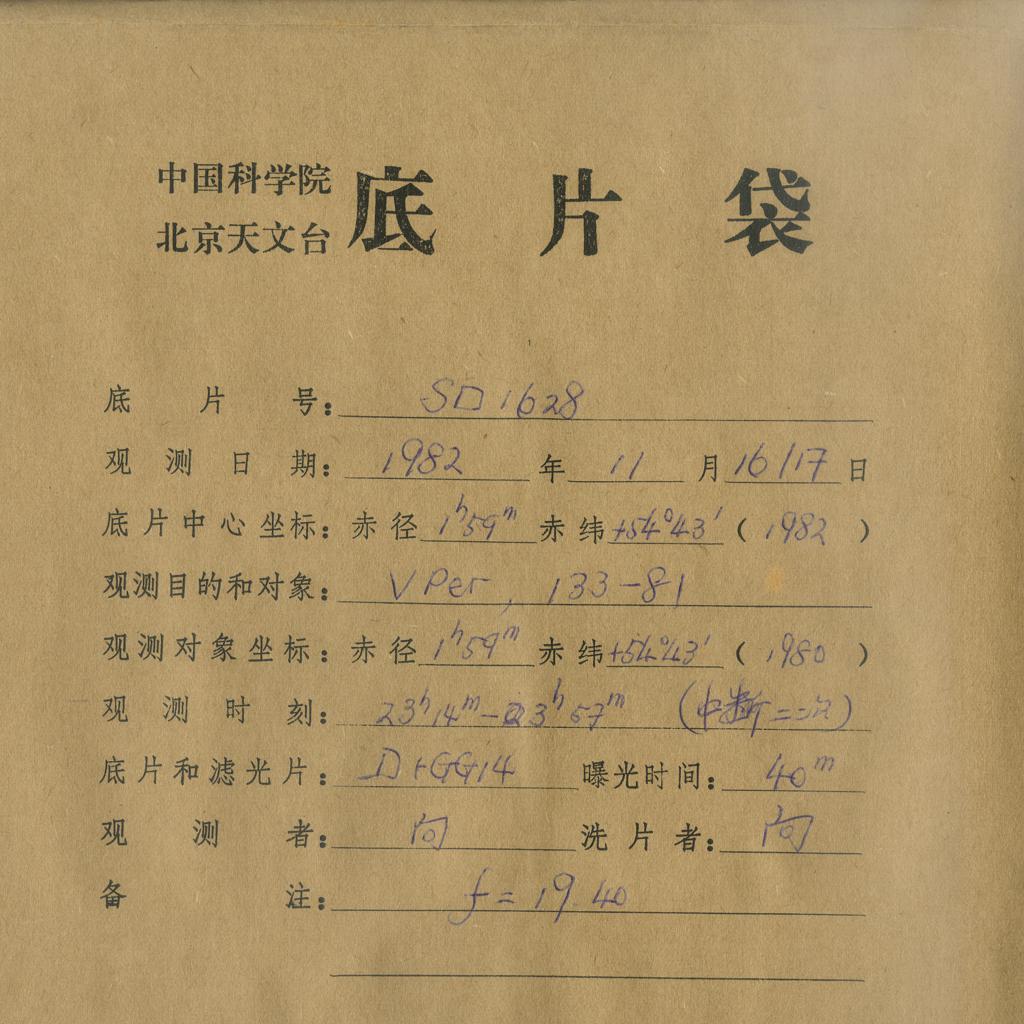 中国科学院
北京天文台
底片袋
底片号：SD1628
观测日期：1982年11月16/17日
底片中心坐标：赤径1ʰ59ᵐ赤纬+54°43′（1982）
观测目的和对象：V Per, 133-81
观测对象坐标：赤径1ʰ59ᵐ赤纬+54°43′（1980）
观测时刻：23ʰ14ᵐ-23ʰ57ᵐ（中断二次）
底片和滤光片：D+GG14 曝光时间：40ᵐ
观测者：向 洗片者：向
备注：f=19.40